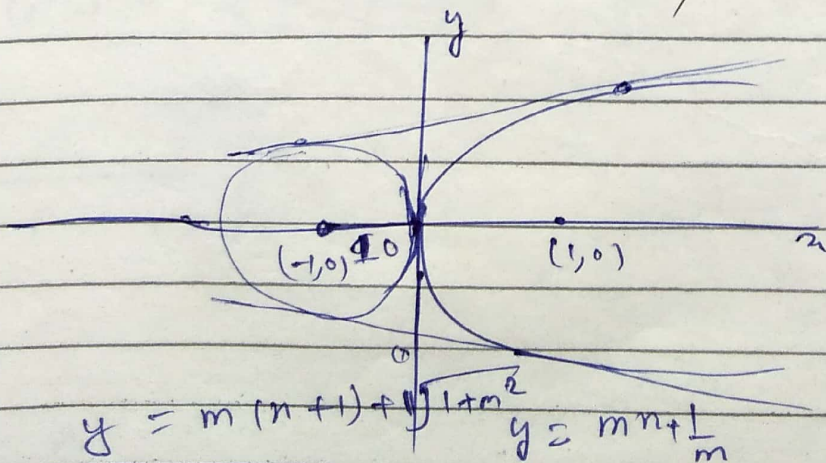 y
(-1,0) 0 (1,0) x
y = m(x+1) + √1+m² y = mx + 1/m